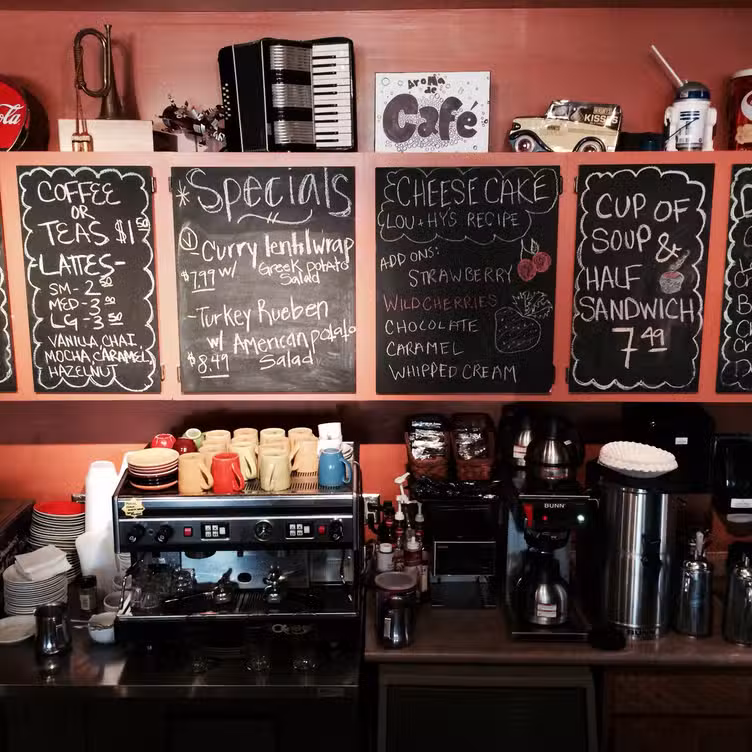 Cola
Aroma
de
Café
KISSES
COFFEE
OR
TEAS $1.50
LATTES-
SM-2.50
MED-3.00
LG-3.50
VANILLA, CHAI,
MOCHA, CARAMEL,
HAZELNUT
* Specials
① -Curry lentil wrap
$7.99 w/ Greek potato
Salad
-Turkey Rueben
w/ American potato
$8.49 Salad
CHEESECAKE
LOU & HY'S RECIPE
ADD ONS:
STRAWBERRY
WILD CHERRIES
CHOCOLATE
CARAMEL
WHIPPED CREAM
CUP OF
SOUP &
HALF
SANDWICH
7.49
BUNN